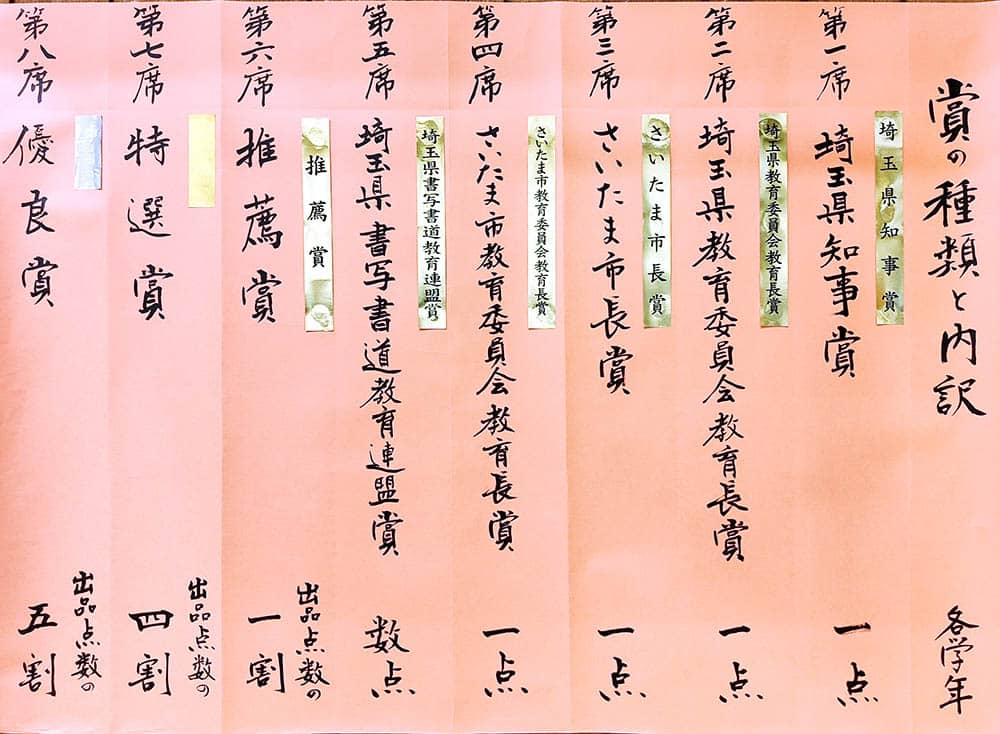 賞の種類と内訳
各学年
第一席
埼玉県知事賞
埼玉県知事賞
一点
第二席
埼玉県教育委員会教育長賞
埼玉県教育委員会教育長賞
一点
第三席
さいたま市長賞
さいたま市長賞
一点
第四席
さいたま市教育委員会教育長賞
さいたま市教育委員会教育長賞
一点
第五席
埼玉県書写書道教育連盟賞
埼玉県書写書道教育連盟賞
数点
第六席
推薦賞
推薦賞
出品点数の
一割
第七席
特選賞
出品点数の
四割
第八席
優良賞
出品点数の
五割